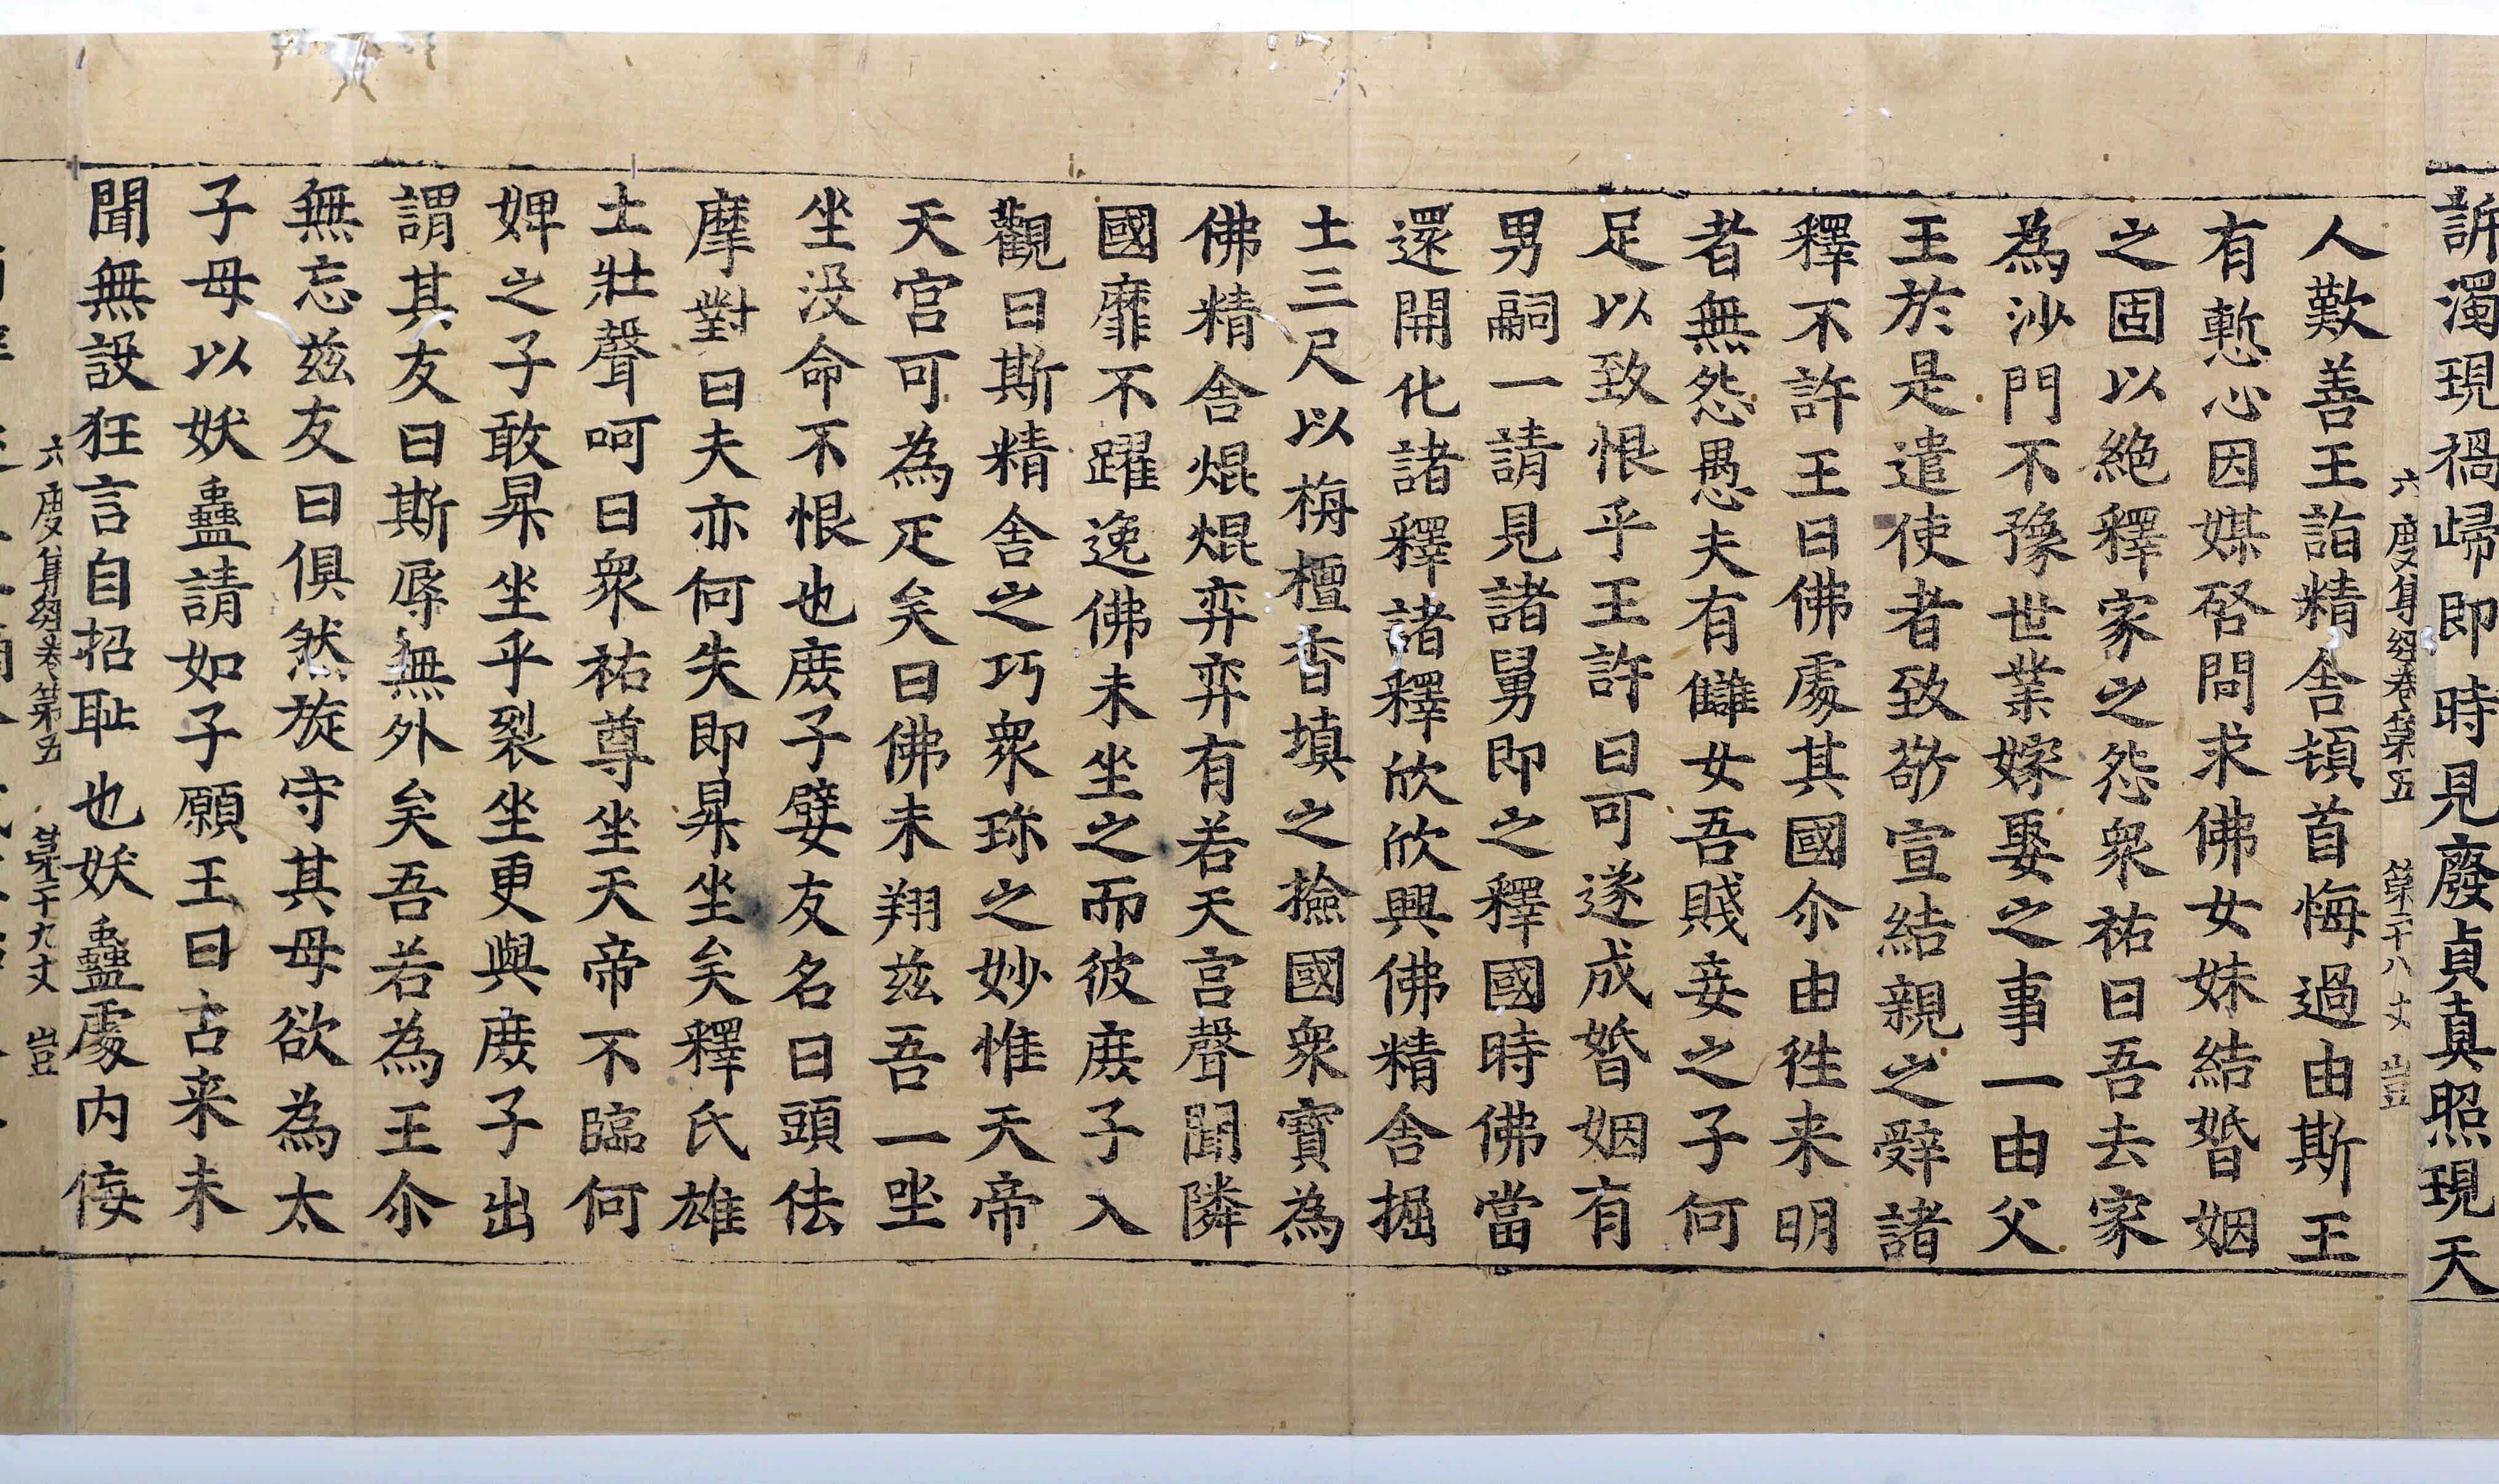 訴濁現禍歸即時見廢貞真照現天
六度集經卷第五 第二十八丈 豈
人歎善王詣精舍頓首悔過由斯王
有慙心因媒啓問求佛女妹結婚姻
之固以絶釋家之怨衆祐曰吾去家
為沙門不豫世業嫁娶之事一由父
王於是遣使者致敬宣結親之辤諸
釋不許王曰佛處其國尒由徃来明
者無怨愚夫有讎女吾賤妾之子何
足以致恨乎王許曰可遂成婚姻有
男嗣一請見諸舅即之釋國時佛當
還開化諸釋諸釋欣欣興佛精舍掘
土三尺以栴檀香填之撿國衆寶為
佛精舍焜焜弈弈有若天宫聲聞隣
國靡不躍逸佛未坐之而彼庻子入
觀曰斯精舍之巧衆珎之妙惟天帝
天宫可為疋矣曰佛未翔兹吾一坐
坐没命不恨也庻子嬖友名曰頭佉
摩對曰夫亦何失即昇坐矣釋氏雄
士壯聲呵曰衆祐尊坐天帝不臨何
婢之子敢昇坐乎裂坐更與庻子出
謂其友曰斯辱無外矣吾若為王尒
無忘兹友曰俱然旋守其母欲為太
子母以妖蠱請如子願王曰古来未
聞無設狂言自招耻也妖蠱處内佞
六度集經卷第五 第二十九丈 豈